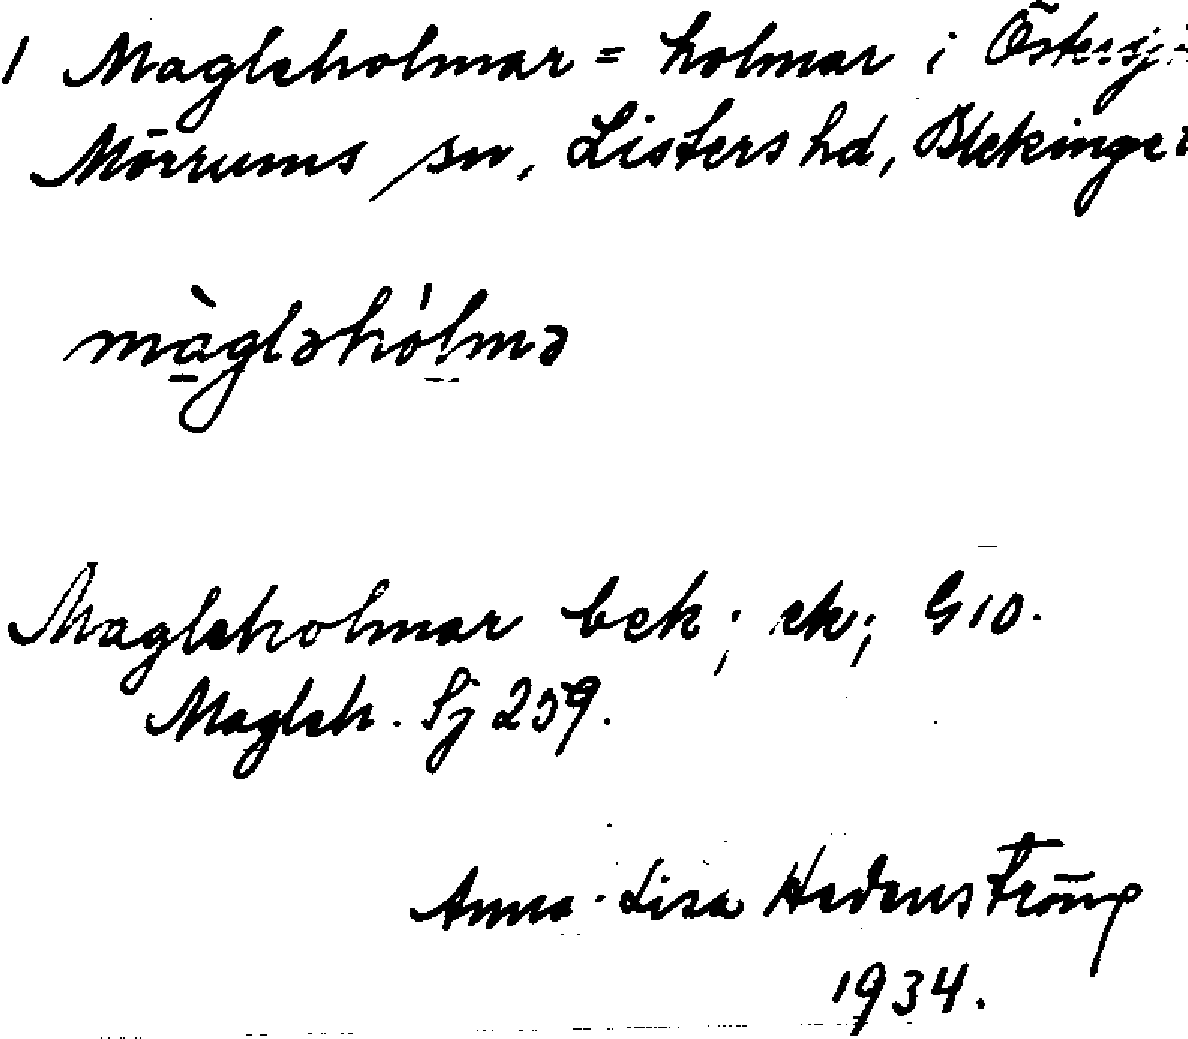 1 Magleholmar = holmar i Östersjö
Mörrums sn, Listers hd, Blekinge
màgləhólmə
Magleholmar bek; ek; G 10.
Magleh. Sj 259.
Anna-Lisa Hedenström
1934.